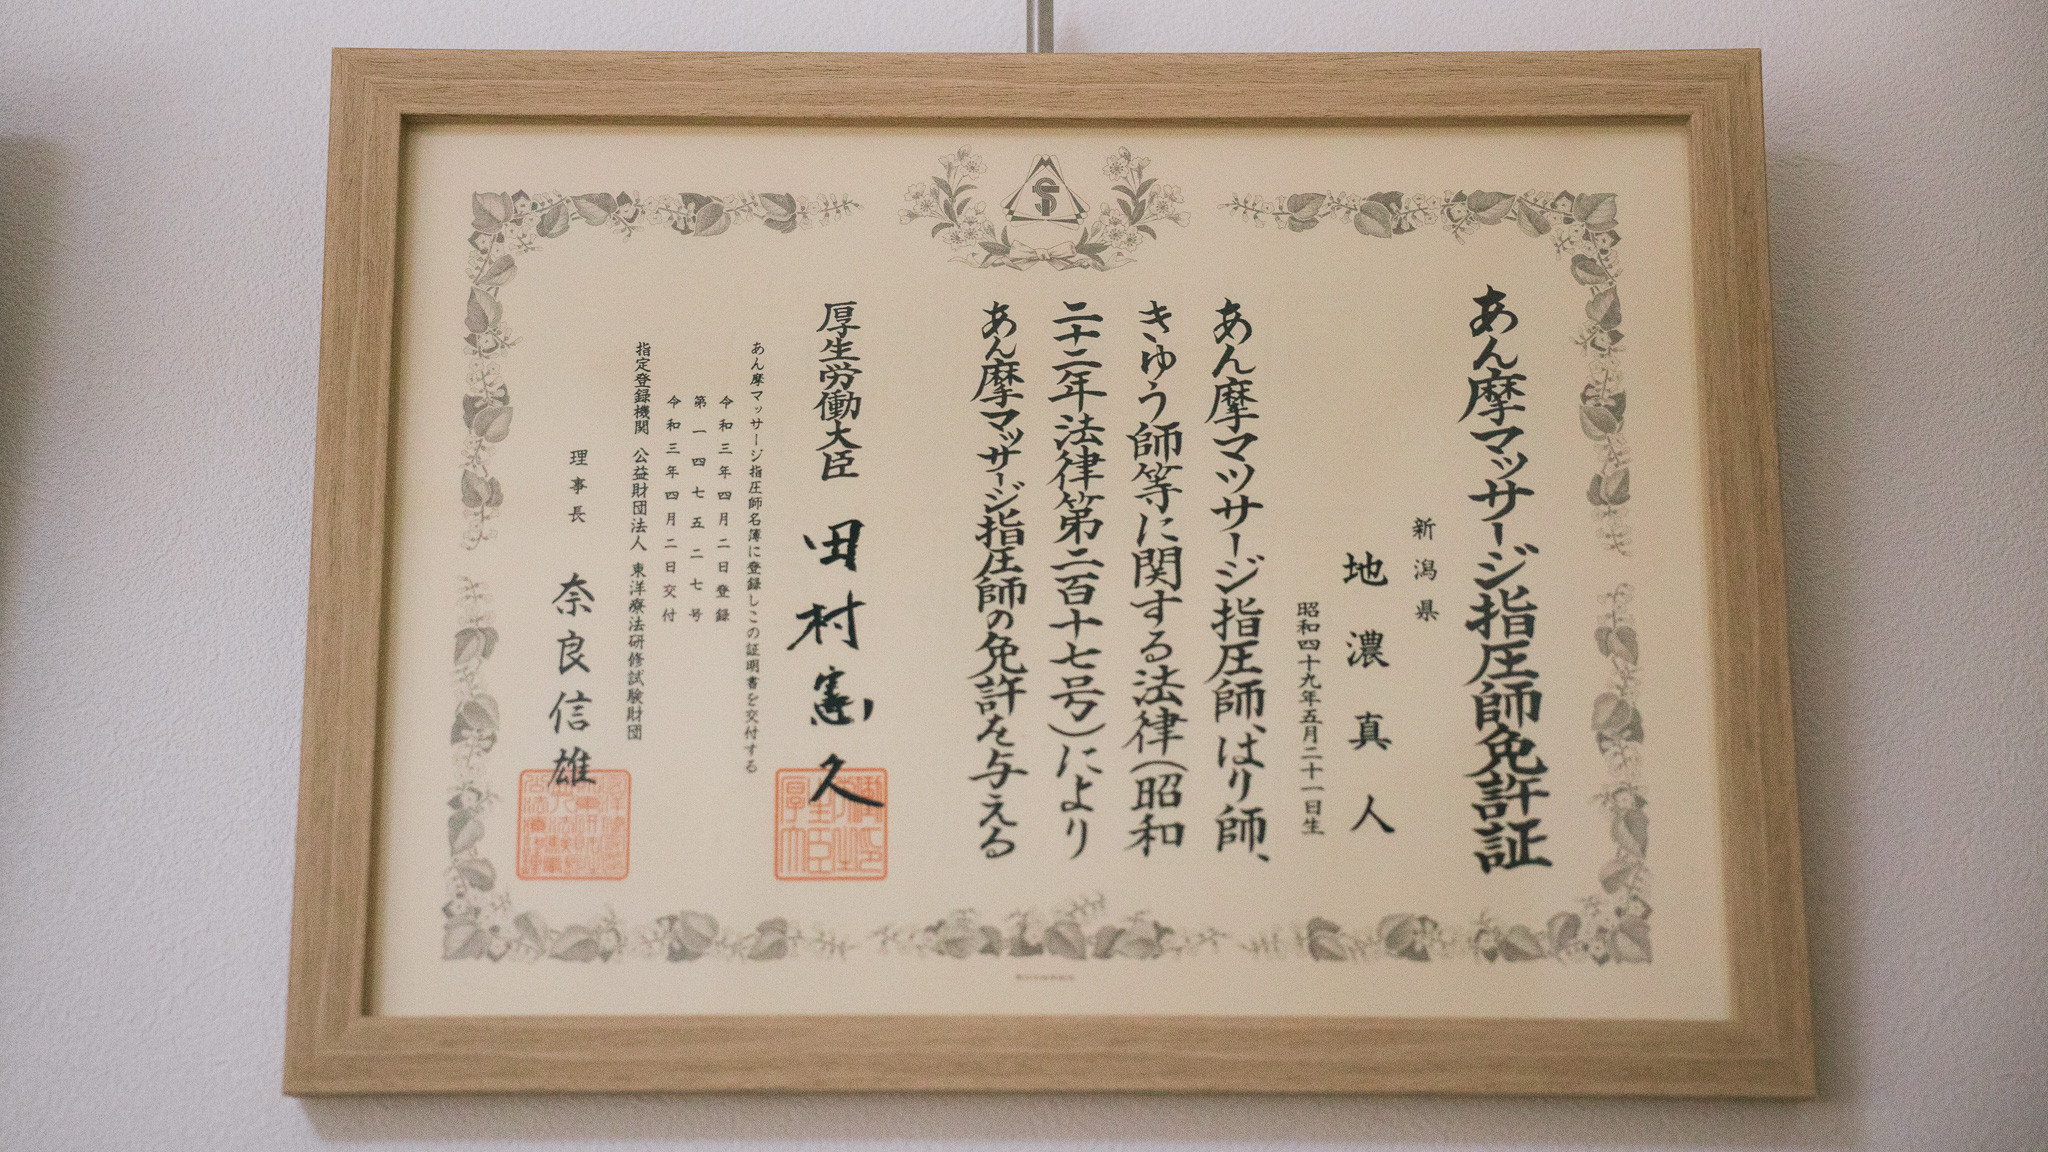 あん摩マッサージ指圧師免許証
新潟県
地濃真人
昭和四十九年五月二十一日生
あん摩マツサージ指圧師、はり師、
きゆう師等に関する法律（昭和
二十二年法律第二百十七号）により
あん摩マッサージ指圧師の免許を与える
厚生労働大臣 田村憲久
あん摩マッサージ指圧師名簿に登録しこの証明書を交付する
令和三年四月二日登録
第一四七五二七号
令和三年四月二日交付
指定登録機関 公益財団法人 東洋療法研修試験財団
理事長 奈良信雄